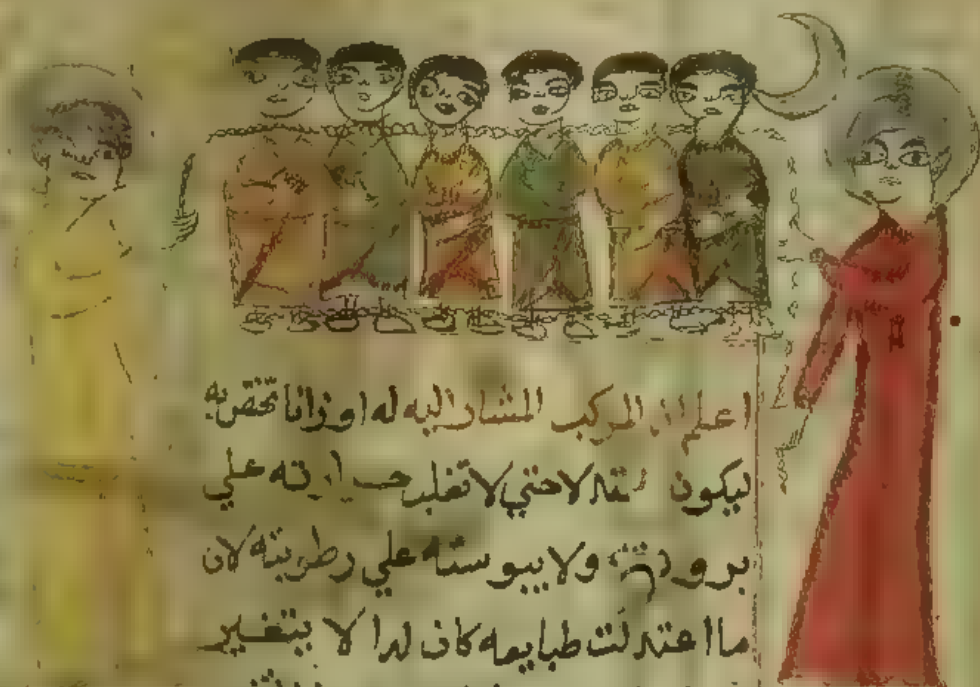 اعلم ان المركب المشار اليه له اوزانا تختص به
ليكون لا حتي لا تغلب حرارته علي
برودته ولا يبوسته علي رطوبته لان
ما اعتدلت طبايعه كان لدا لا يتغير